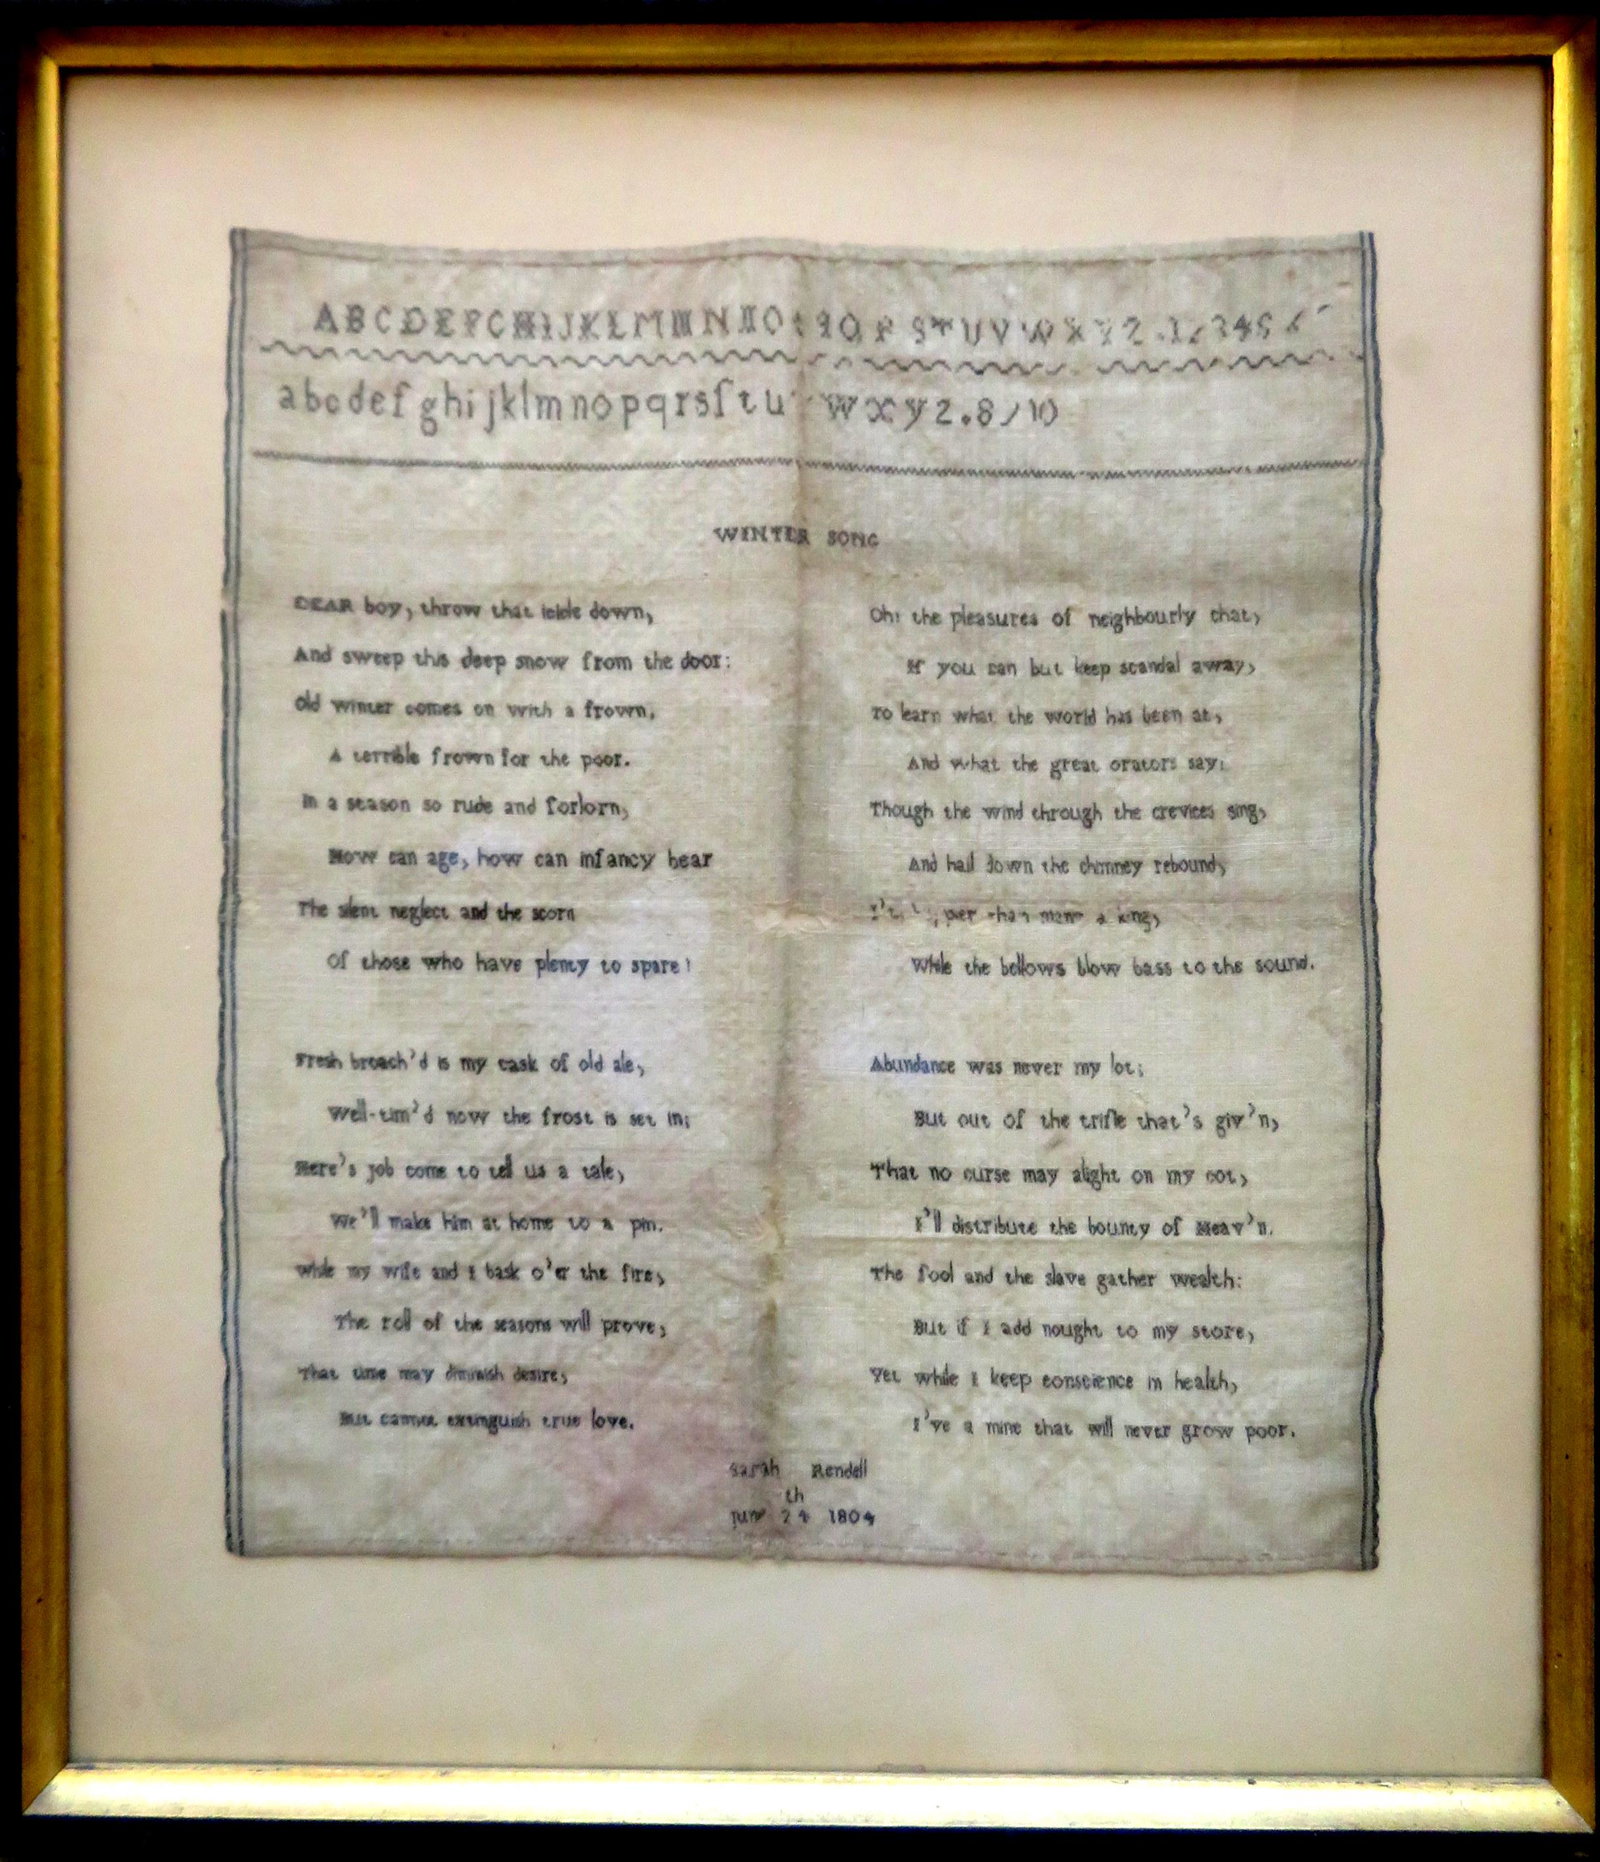 A B C D E F G H I J K L M N O Q R S T U V W X Y Z . 1 2 3 4 5 6
a b c d e f g h i j k l m n o p q r s ſ t u w x y z . 8 9 10
WINTER SONG
DEAR boy, throw that icicle down,
And sweep this deep snow from the door:
Old winter comes on with a frown,
A terrible frown for the poor.
In a season so rude and forlorn,
How can age, how can infancy bear
The silent neglect and the scorn
Of those who have plenty to spare!
Fresh broach'd is my cask of old ale,
Well-tim'd now the frost is set in;
Here's job come to tell us a tale,
We'll make him at home to a pin.
While my wife and I bask o'er the fire,
The roll of the seasons will prove,
That time may diminish desire,
But cannot extinguish true love.
Oh! the pleasures of neighbourly chat,
If you can but keep scandal away,
To learn what the world has been at,
And what the great orators say;
Though the wind through the crevices sing,
And hail down the chimney rebound,
than many a king,
While the bellows blow bass to the sound.
Abundance was never my lot;
But out of the trifle that's giv'n,
That no curse may alight on my cot,
I'll distribute the bounty of Heav'n.
The fool and the slave gather wealth:
But if I add nought to my store,
Yet while I keep conscience in health,
I've a mine that will never grow poor.
Sarah Rendell
th
24 1804